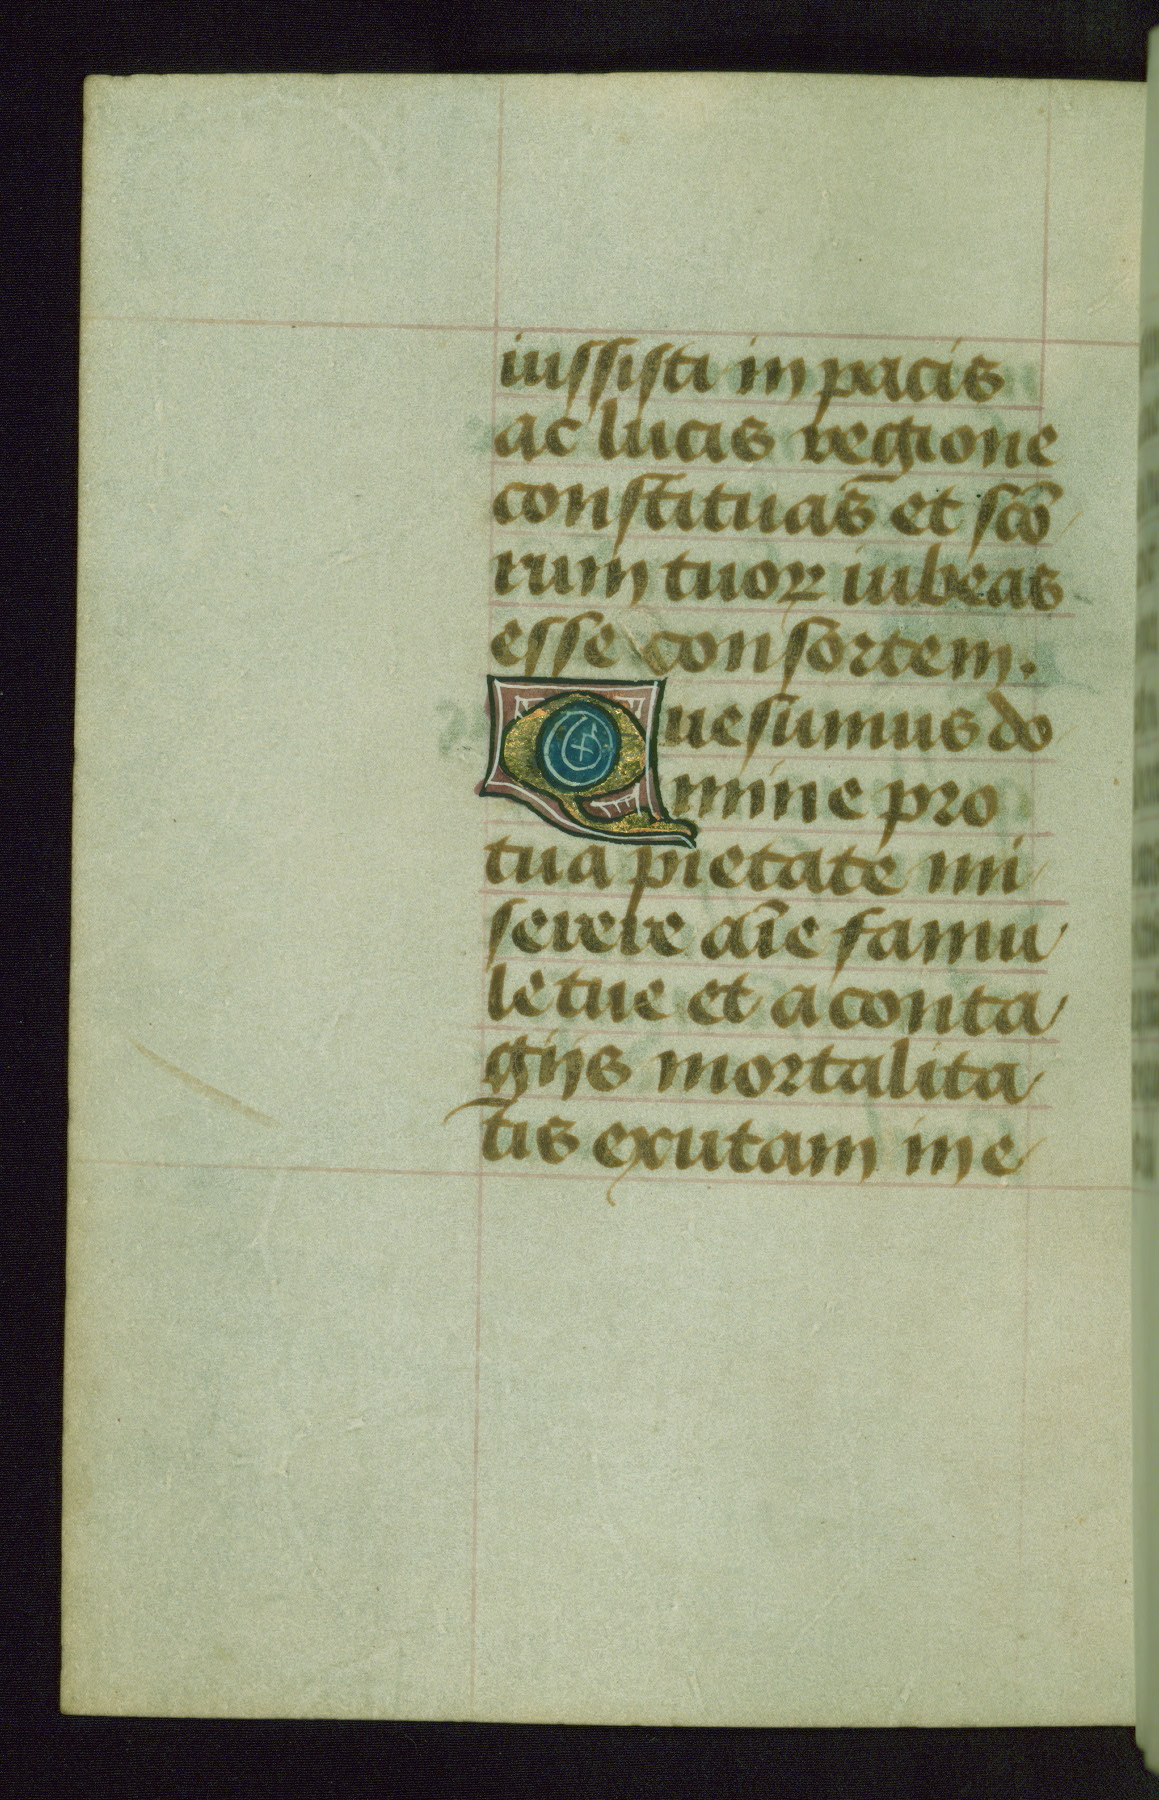 iussisti in pacis
ac lucis regione
constituas̄ et sc̄o
rum tuoꝝ iubeas
esse consortem.
Quesumus do
mine pro
tua pietate mi
serere aīe famu
le tue et a conta
gijs mortalita
tis exutam in e